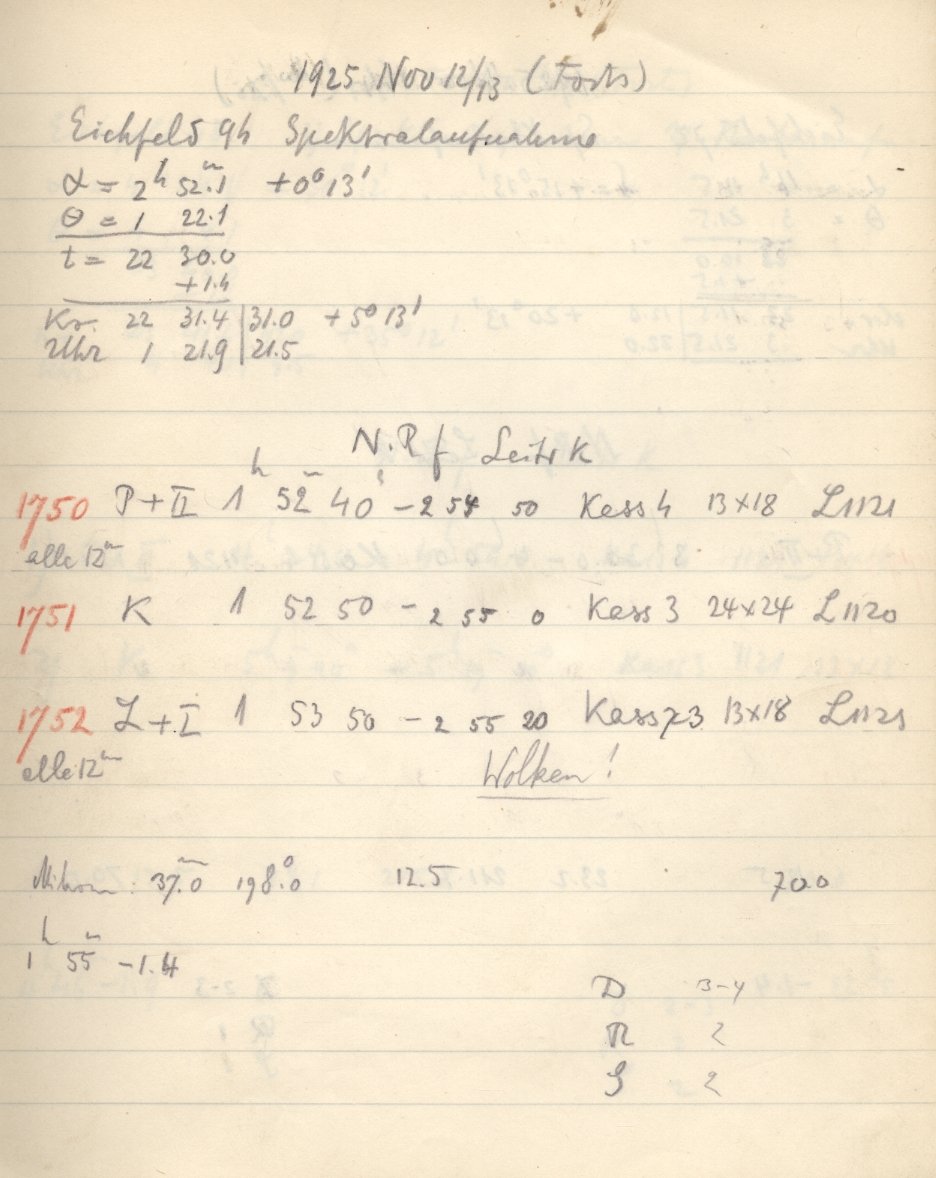 1925 Nov 12/13 (Forts)
Eichfeld 94 Spektralaufnahme
α = 2h 52.m1 +0° 13'
θ = 1 22.1
t = 22 30.0
+1.4
Kr. 22 31.4 | 31.0 +5° 13'
Uhr 1 21.9 | 21.5
N.P f Leitr K
1750 P+II 1h 52m 40s -2 54 50 Kass 4 13×18 L1121
alle 12m
1751 K 1 52 50 -2 55 0 Kass 3 24×24 L1120
1752 Z+I 1 53 50 -2 55 20 Kass 3 13×18 L1121
alle 12m
Wolken!
Mikrom: 37.0 198.°0 12.5 70.0
1h 55m -1.4
D 3-4
R 2
S 2